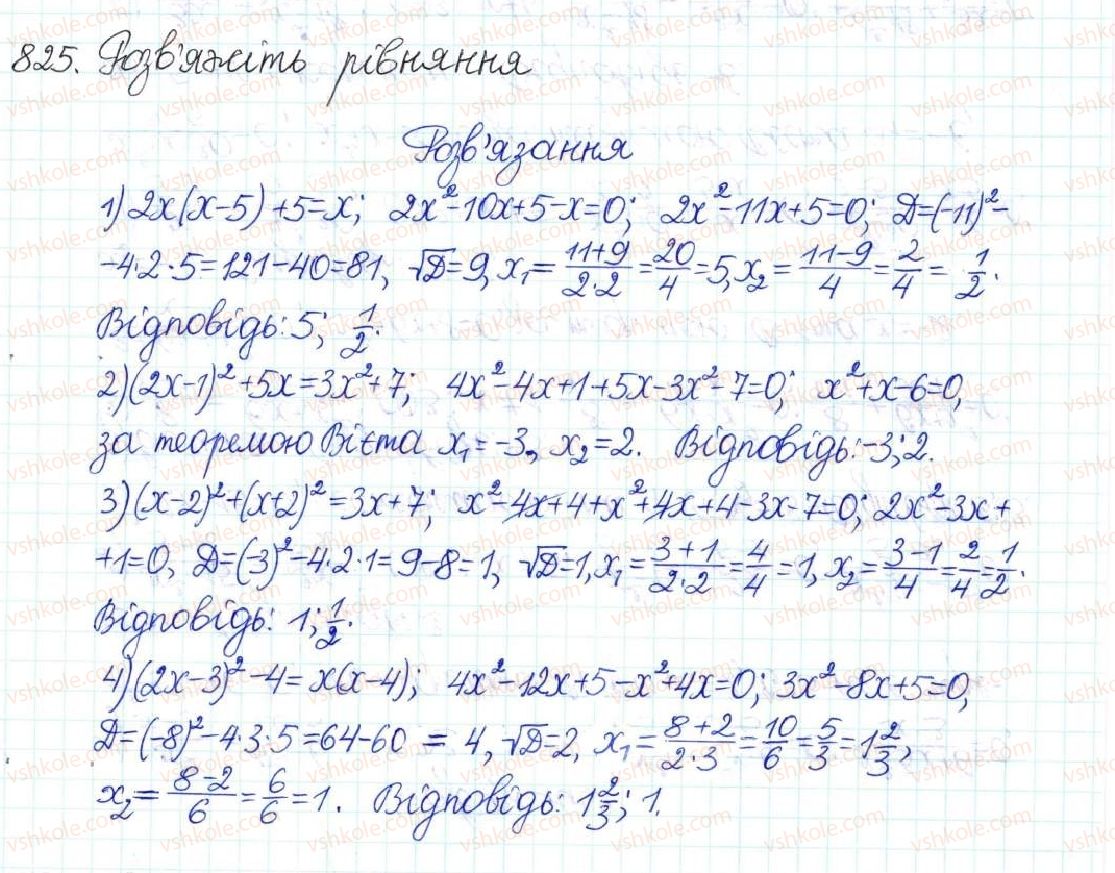 825. Розв'яжіть рівняння
Розв'язання
1) 2x(x-5)+5=x; 2x²-10x+5-x=0; 2x²-11x+5=0; D=(-11)²-
-4·2·5=121-40=81, √D=9, x₁=(11+9)/(2·2)=20/4=5, x₂=(11-9)/4=2/4=1/2.
Відповідь: 5; 1/2.
2) (2x-1)²+5x=3x²+7; 4x²-4x+1+5x-3x²-7=0; x²+x-6=0,
за теоремою Вієта x₁=-3, x₂=2. Відповідь: -3; 2.
3) (x-2)²+(x+2)²=3x+7; x²-4x+4+x²+4x+4-3x-7=0; 2x²-3x+
+1=0, D=(-3)²-4·2·1=9-8=1, √D=1, x₁=(3+1)/(2·2)=4/4=1, x₂=(3-1)/4=2/4=1/2.
Відповідь: 1; 1/2.
4) (2x-3)²-4=x(x-4); 4x²-12x+5-x²+4x=0; 3x²-8x+5=0,
D=(-8)²-4·3·5=64-60=4, √D=2, x₁=(8+2)/(2·3)=10/6=5/3=1 2/3;
x₂=(8-2)/6=6/6=1. Відповідь: 1 2/3; 1.